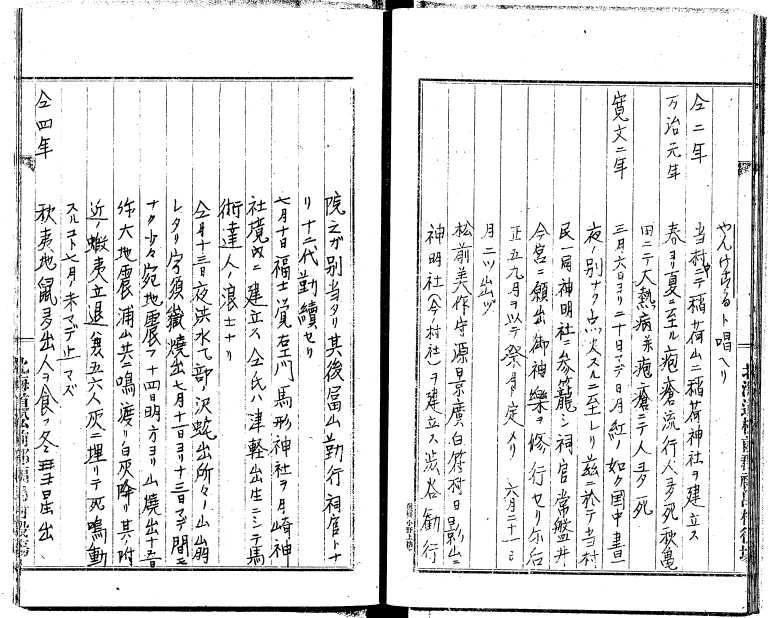 やんけなると唱へり
仝二年 当村ニテ稲荷山ニ稲荷神社ヲ建立ス
万治元年 春ヨリ夏ニ至ル疱瘡流行人多死秋亀
田ニテ大熱病並疱瘡ニテ人多ク死
寛文二年 三月六日ヨリ二十日マデ日月紅ノ如ク国中昼
夜ノ別ナク点火スルニ至レリ茲ニ於テ当村
民一同神明社ニ参籠シ祠官常盤井
今宮ニ願出御神楽ヲ修行セリ尓后
正五九月ヲ以テ祭月ト定メリ 六月二十一ニ
月二ツ出ヅ
松前美作守源景廣白符村日影山ニ
神明社(今村社)ヲ建立ス渋谷勧行
院之ガ別当タリ其後冨山勤行祠官トナ
リ十二代勤續セリ
七月十日福士覚右エ門馬形神社ヲ月崎神
社境内ニ建立ス仝氏ハ津軽出生ニシテ馬
術達人ノ浪士ナリ
仝月十三日夜洪水乙部ノ沢蛇出所々ノ山崩
レタリ字須嶽燒出七月十一日ヨリ十三日マデ間ニ
ナク少々宛地震フ十四日明方ヨリ山燒出十五日
弥大地震浦山共ニ鳴渡リ白灰降リ其ノ附
近ノ蝦夷立退ノ五六人灰ニ埋リテ死鳴動
スルコト七月ノ末マデ止マズ
仝四年 秋夷地鼠多出人ヲ食フ冬 星出
北海道松前郡福島村役場